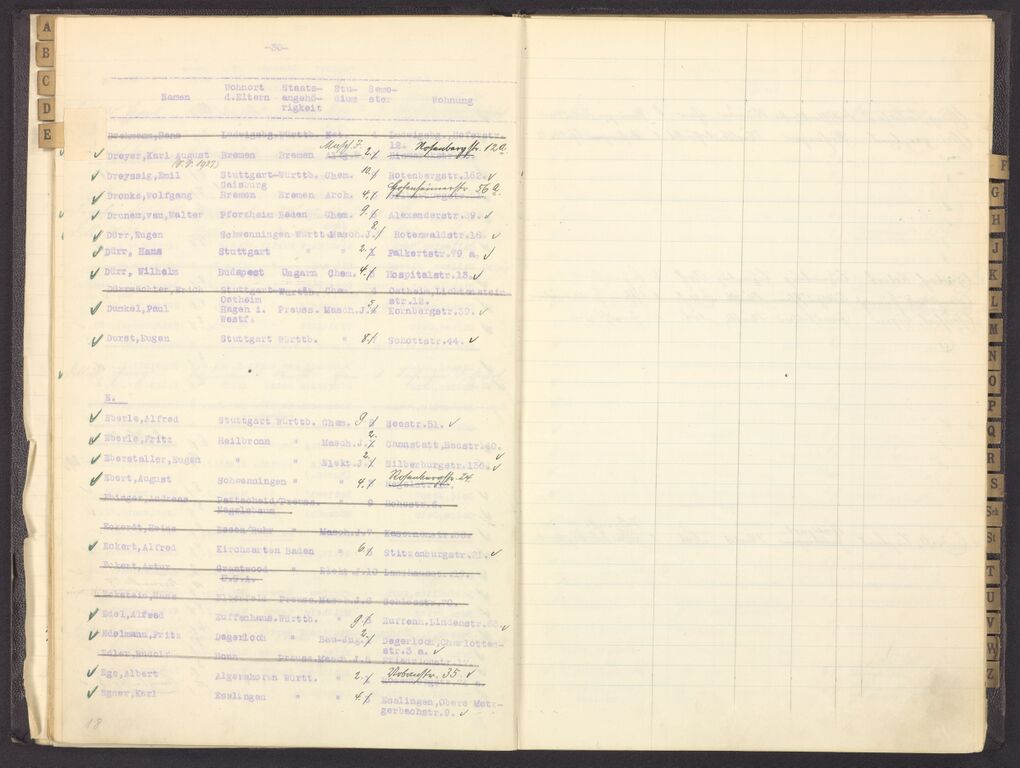 A
B
C
D
E
-30-
Namen Wohnort d.Eltern Staats-angehö-rigkeit Stu-dium Seme-ster Wohnung
Ludwigsbg. Württb. 4 Ludwigsbg, Hoferstr. 12.
Dreyer, Karl August Bremen Bremen 2. Rosenbergstr. 12a.
Dreyssig, Emil Stuttgart-Gaisburg Württb. Chem. 10. Rotenbergstr.162.
Dronke, Wolfgang Bremen Bremen Arch. 4. 56a.
Drunen, van, Walter Pforzheim Baden Chem. 9. Alexanderstr.39.
Dürr, Eugen Schwenningen Württ. Masch.J. 8. Rotenwaldstr.18.
Dürr, Hans Stuttgart " " 2. Falkertstr.79 a.
Dürr, Wilhelm Budapest Ungarn Chem. 4. Hospitalstr.15.
Stuttgart-Ostheim Württb. Chem. 4 Ostheim, Lichtenstein-str.12.
Dunkel, Paul Hagen i. Westf. Preuss. Masch.J. 5. Kornbergstr.39.
Durst, Eugen Stuttgart Württb. " 8. Schottstr.44.
E.
Eberle, Alfred Stuttgart Württb. Chem. 9. Seestr.51.
Eberle, Fritz Heilbronn " Masch.J. 2. Cannstatt, Badstr.40.
Eberstaller, Eugen " " Elekt.J. 2. Silberburgstr.136.
Ebert, August Schwenningen " " 4. Rosenbergstr. 24
Ebinger, Andreas Pattscheid/ Preuss. " 9 Hohestr.6.
Eckardt, Heinz Essen/Ruhr " Masch.J.V
Eckert, Alfred Kirchzarten Baden " 6. Stitzenburgstr.21.
Eckert, Artur Grantwood U.S.A. Elekt.J.10
Eckstein, Hans Elberfeld Preuss. Masch.J.8 Schlosstr.70.
Edel, Alfred Zuffenhaus. Württb. " 9. Zuffenh. Lindenstr.63.
Edelmann, Fritz Degerloch " Bau-Jng. 2. Degerloch, Charlotten-str.3 a.
Edler, Rudolf Bonn Preuss. Masch.J.4 Friedrichstr.
Ege, Albert Algershofen Württ. " 2. 35.
Egner, Karl Esslingen " " 4. Esslingen, Obere Metz-gerbachstr.9.
18
F
G
H
J
K
L
M
N
O
P
Q
R
S
Sch
St
T
U
V
W
Z